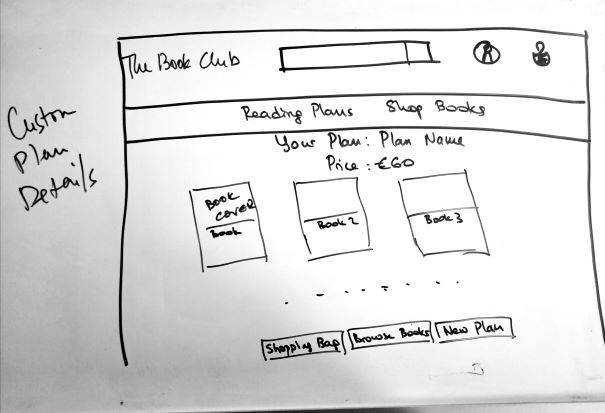 Custom
Plan
Details
The Book Club
Reading Plans Shop Books
Your Plan: Plan Name
Price: €60
Book
Cover
Book
Book 2
Book 3
Shopping Bag
Browse Books
New Plan